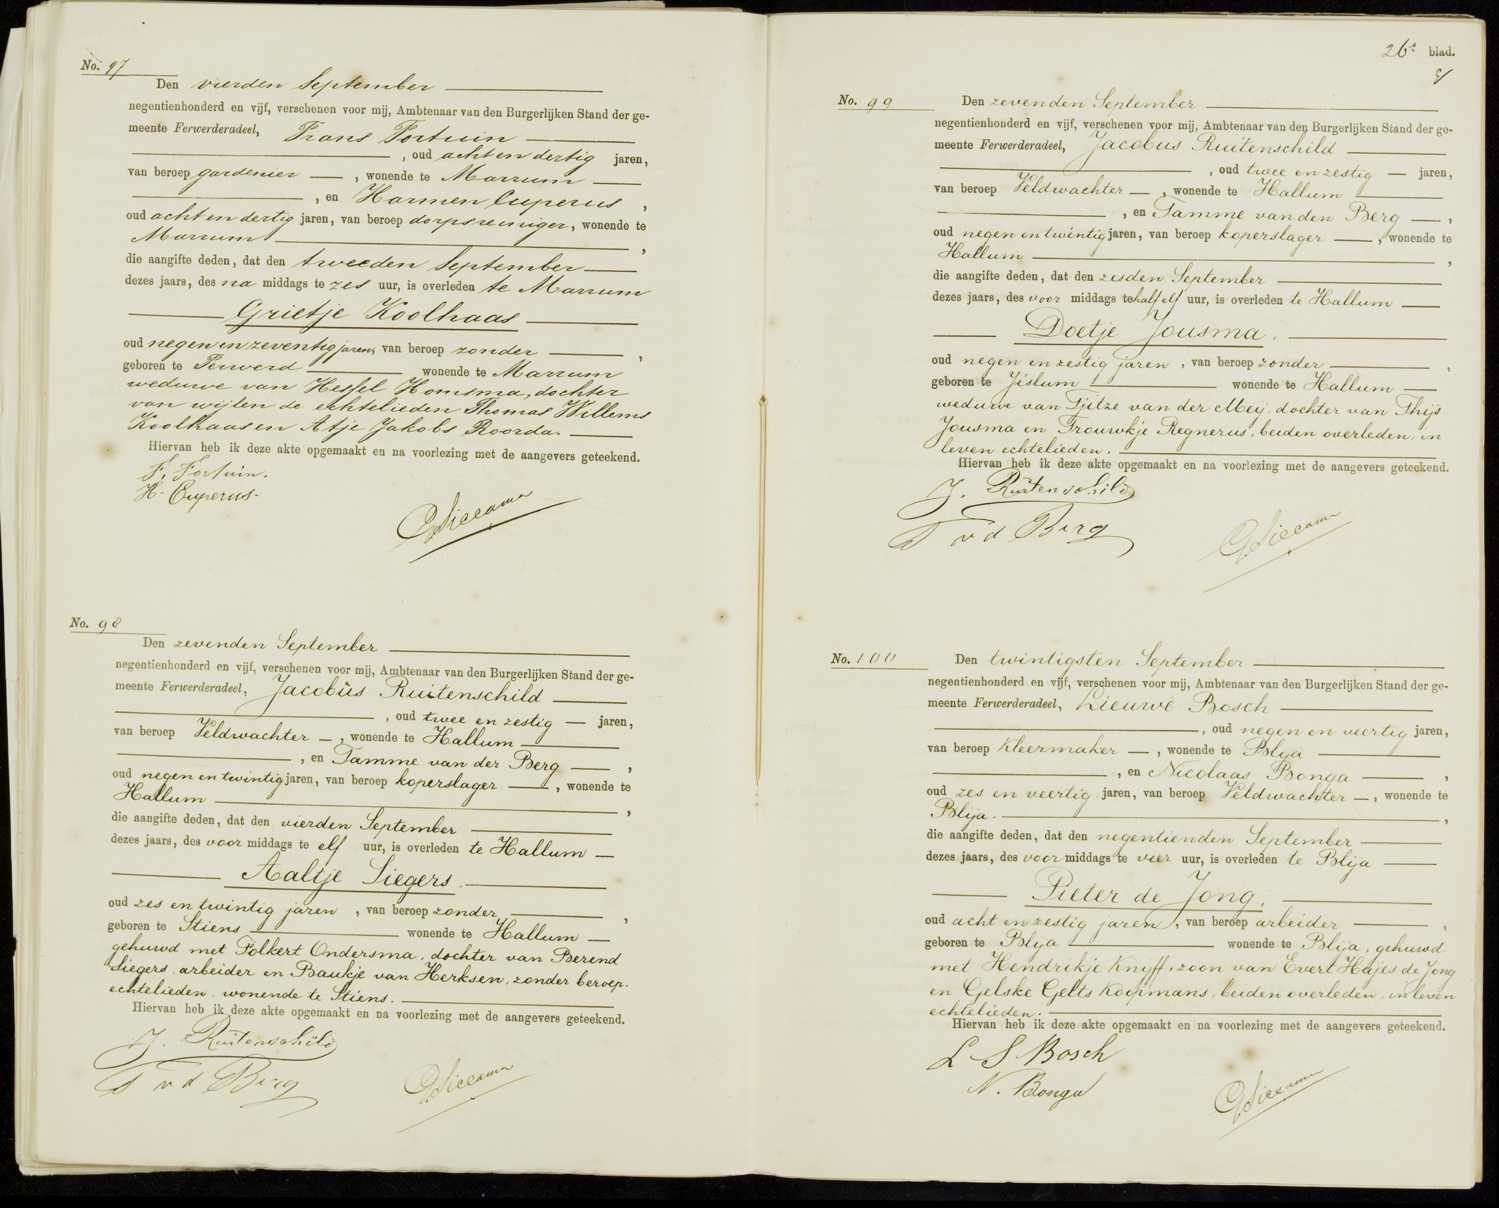 No. 97
Den vierden September
negentienhonderd en vijf, verschenen voor mij, Ambtenaar van den Burgerlijken Stand der ge-
meente Ferwerderadeel, Frans Fortuin
, oud acht en dertig jaren,
van beroep gardenier , wonende te Marrum
, en Harmen Cuperus ,
oud acht en dertig jaren, van beroep dorpsreiniger, wonende te
Marrum ,
die aangifte deden, dat den tweeden September
dezes jaars, des na middags te zes uur, is overleden te Marrum
Grietje Koolhaas
oud negen en zeventig jaren, van beroep zonder ,
geboren te Ferwerd wonende te Marrum
weduwe van Hessel Homsma, dochter
van wijlen de echtelieden Thomas Willems
Koolhaas en Atje Jakobs Roorda.
Hiervan heb ik deze akte opgemaakt en na voorlezing met de aangevers geteekend.
F. Fortuin.
H. Cuperus.
No. 98
Den zevenden September
negentienhonderd en vijf, verschenen voor mij, Ambtenaar van den Burgerlijken Stand der ge-
meente Ferwerderadeel, Jacobus Ruitenschild
, oud twee en zestig jaren,
van beroep Veldwachter , wonende te Hallum
, en Tamme van der Berg ,
oud negen en twintig jaren, van beroep koperslager , wonende te
Hallum ,
die aangifte deden, dat den vierden September
dezes jaars, des voor middags te elf uur, is overleden te Hallum
Aaltje Siegers
oud zes en twintig jaren , van beroep zonder ,
geboren te Stiens wonende te Hallum
gehuwd met Folkert Ondersma, dochter van Berend
Siegers, arbeider en Baukje van Herksen, zonder beroep,
echtelieden, wonende te Stiens.
Hiervan heb ik deze akte opgemaakt en na voorlezing met de aangevers geteekend.
J. Ruitenschild
T v d Berg
26e blad.
No. 99
Den zevenden September
negentienhonderd en vijf, verschenen voor mij, Ambtenaar van den Burgerlijken Stand der ge-
meente Ferwerderadeel, Jacobus Ruitenschild
, oud twee en zestig jaren,
van beroep Veldwachter , wonende te Hallum
, en Tamme van den Berg ,
oud negen en twintig jaren, van beroep koperslager , wonende te
Hallum ,
die aangifte deden, dat den zesden September
dezes jaars, des voor middags te half elf uur, is overleden te Hallum
Doetje Jousma.
oud negen en zestig jaren , van beroep zonder ,
geboren te Jislum wonende te Hallum
weduwe van Tjitze van der Meij, dochter van Thijs
Jousma en Trouwkje Regnerus, beiden overleden, in
leven echtelieden.
Hiervan heb ik deze akte opgemaakt en na voorlezing met de aangevers geteekend.
J. Ruitenschild
T v d Berg
No. 100
Den twintigsten September
negentienhonderd en vijf, verschenen voor mij, Ambtenaar van den Burgerlijken Stand der ge-
meente Ferwerderadeel, Lieuwe Bosch
, oud negen en veertig jaren,
van beroep Kleermaker , wonende te Blija
, en Nicolaas Bonga ,
oud zes en veertig jaren, van beroep Veldwachter , wonende te
Blija. ,
die aangifte deden, dat den negentienden September
dezes jaars, des voor middags te vier uur, is overleden te Blija
Pieter de Jong.
oud acht en zestig jaren, van beroep arbeider ,
geboren te Blija wonende te Blija, gehuwd
met Hendrikje Knijff, zoon van Evert Hajes de Jong
en Gelske Gelts Koopmans, beiden overleden, in leven
echtelieden.
Hiervan heb ik deze akte opgemaakt en na voorlezing met de aangevers geteekend.
L S Bosch
N. Bonga